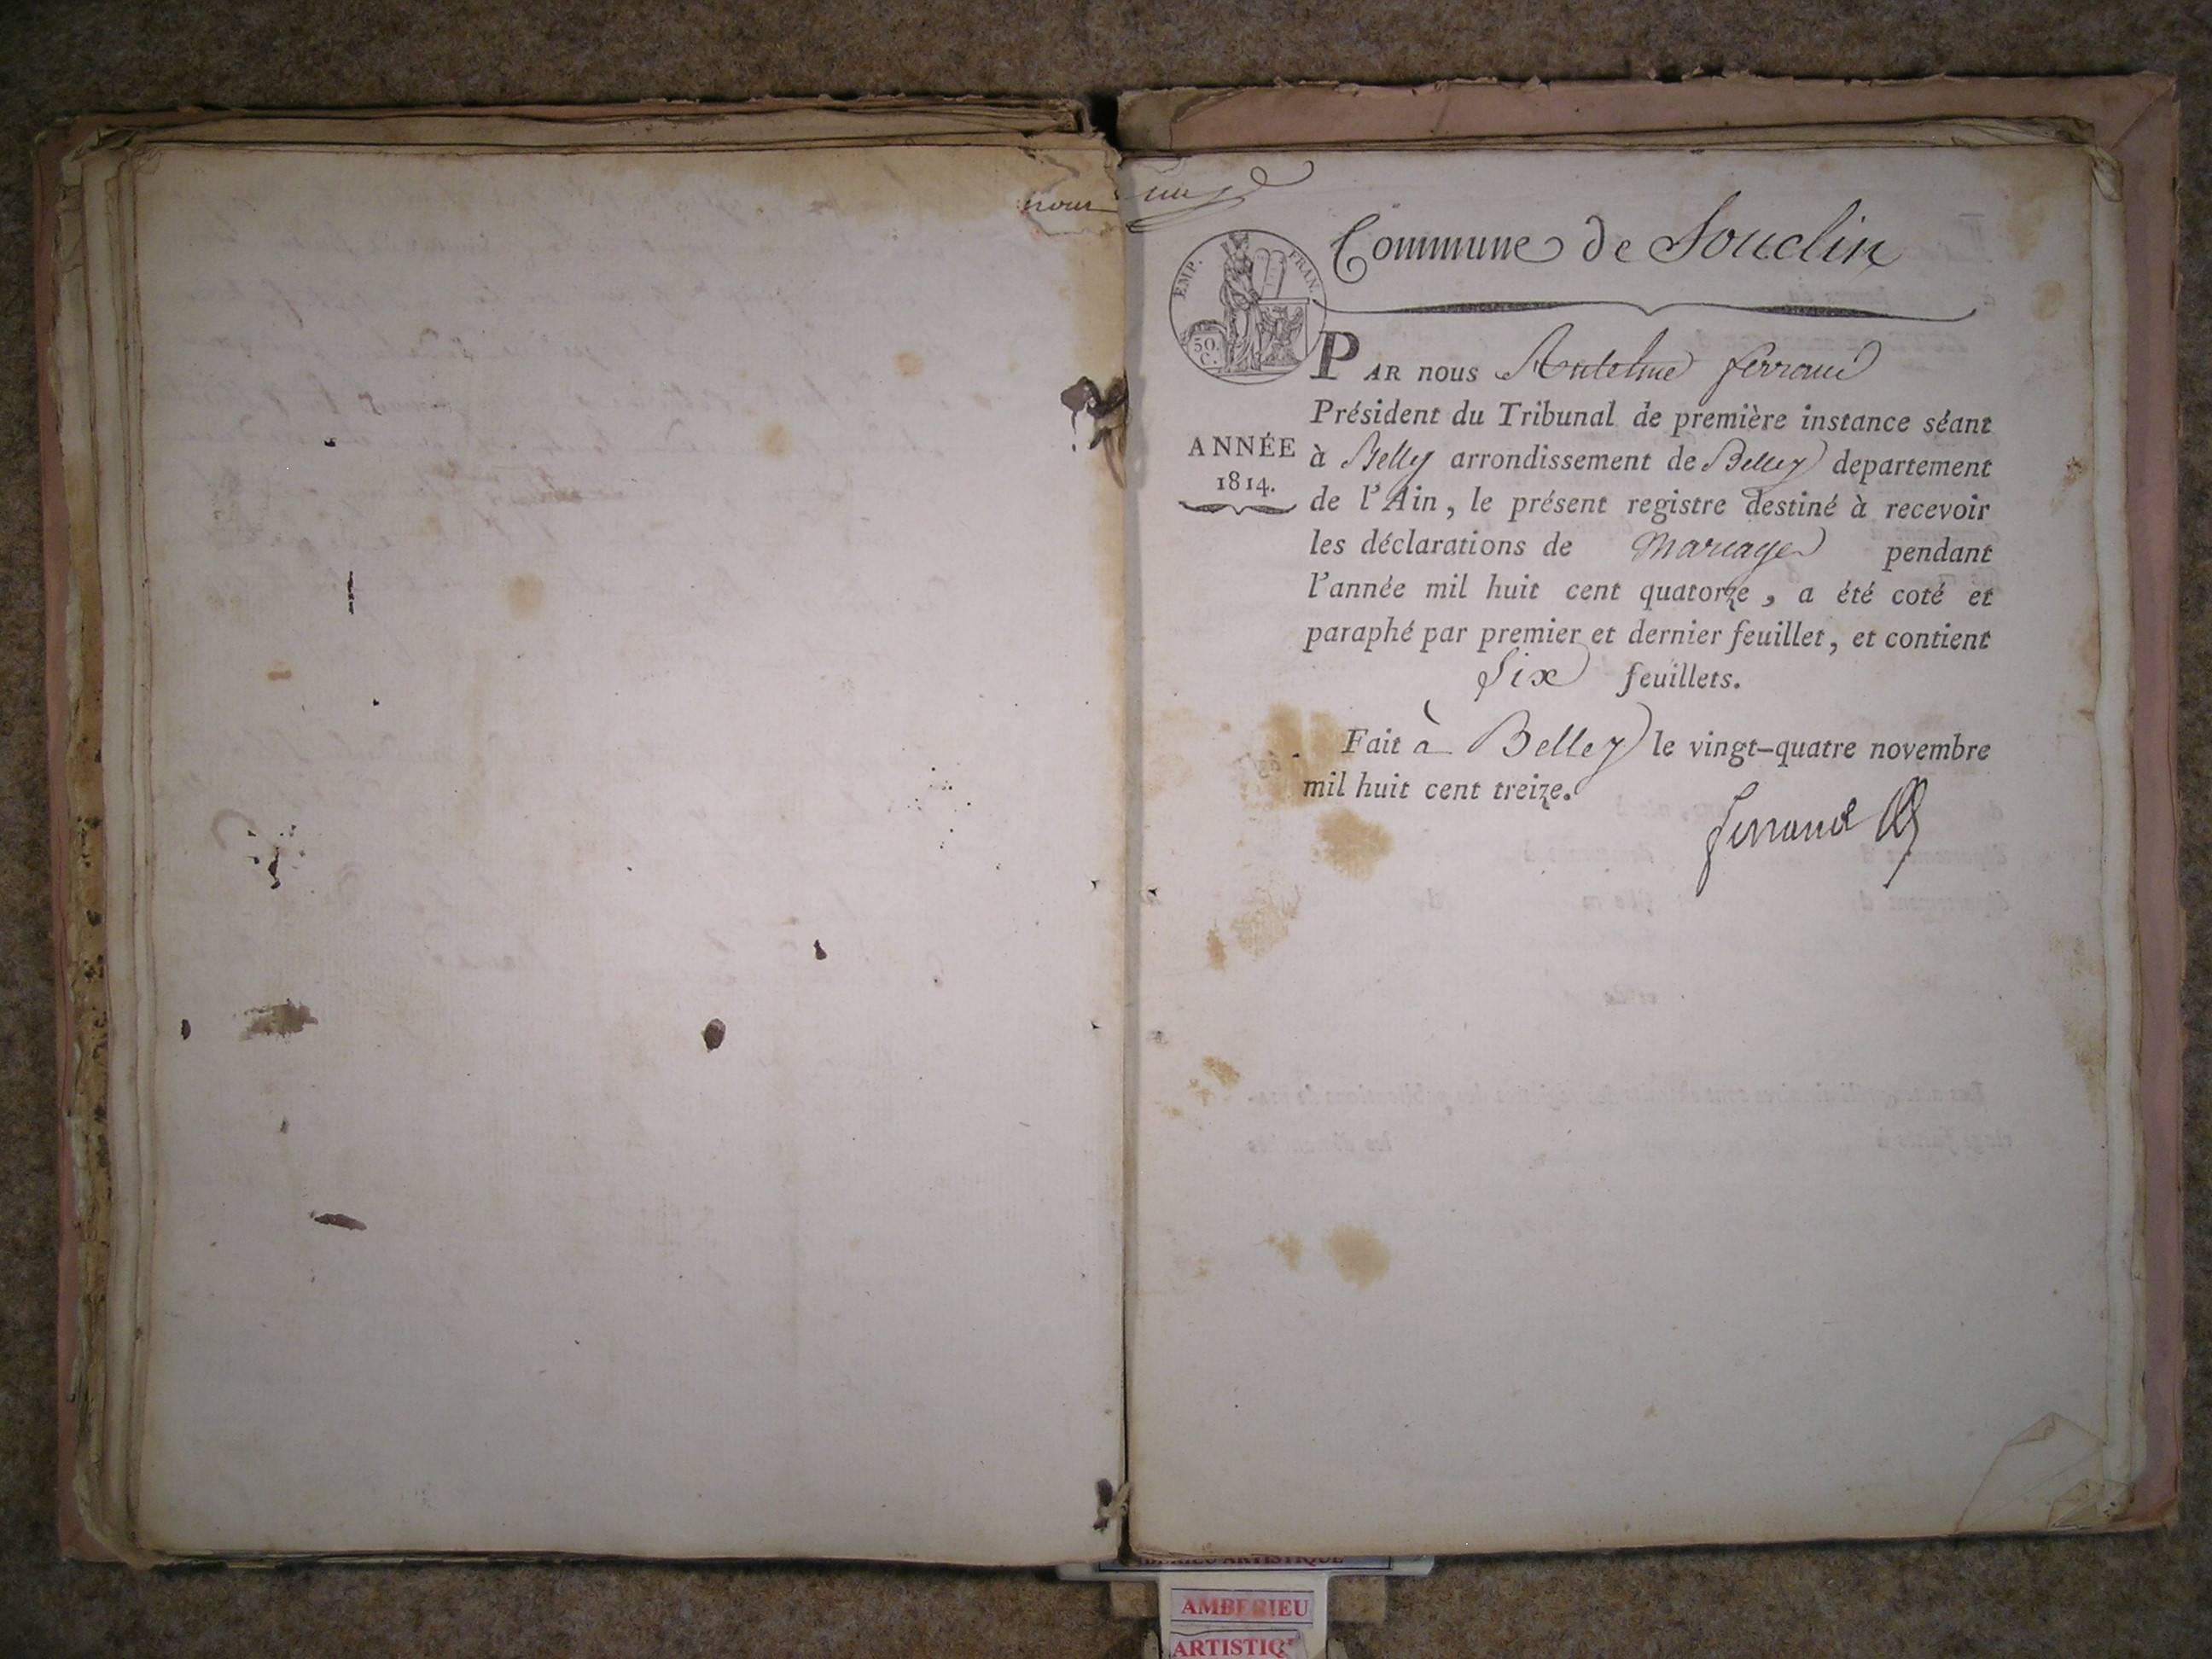 Commune de Souclin
EMP. FRAN.
50.
C.
PAR nous Antelme ferrand
Président du Tribunal de première instance séant
ANNÉE
1814.
à Belley arrondissement de Belley departement
de l'Ain, le présent registre destiné à recevoir
les déclarations de Mariages pendant
l'année mil huit cent quatorze, a été coté et
paraphé par premier et dernier feuillet, et contient
Six feuillets.
Fait à Belley le vingt-quatre novembre
mil huit cent treize.
ferrand
ARTISTIQUE
AMBERIEU
ARTISTIQ